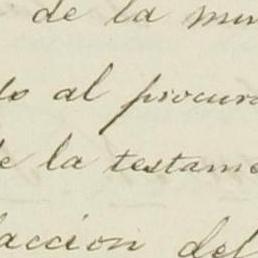 de la min
do al procura
de la testame
facción del